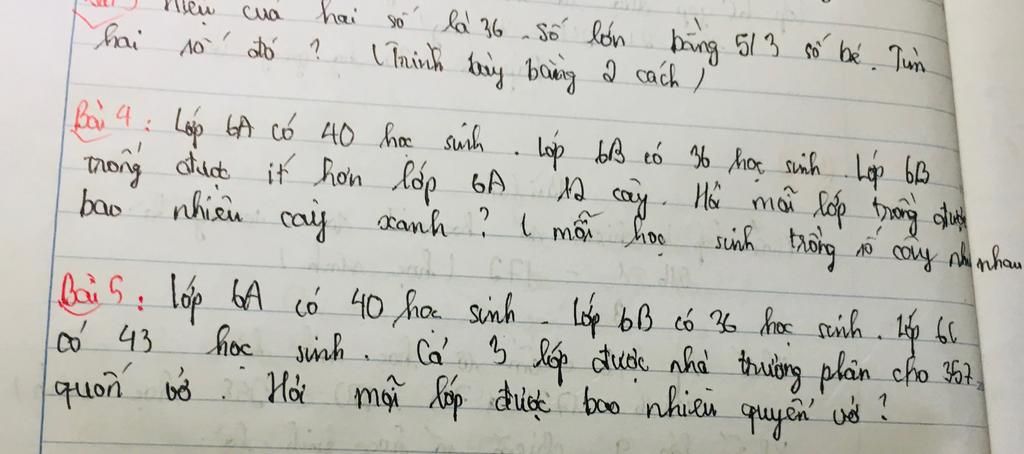 Hiệu của hai số là 36. Số lớn bằng 5/3 số bé. Tìm
hai số đó ? (Trình bày bằng 2 cách)
Bài 4 : Lớp 6A có 40 học sinh. Lớp 6B có 36 học sinh. Lớp 6B
trồng được ít hơn lớp 6A 12 cây. Hỏi mỗi lớp trồng được
bao nhiêu cây xanh ? ( mỗi học sinh trồng số cây như nhau
Bài 5 : Lớp 6A có 40 học sinh. Lớp 6B có 36 học sinh. Lớp 6C
có 43 học sinh. Cả 3 lớp được nhà trường phân cho 357
quốn vở. Hỏi mỗi lớp được bao nhiêu quyển vở ?